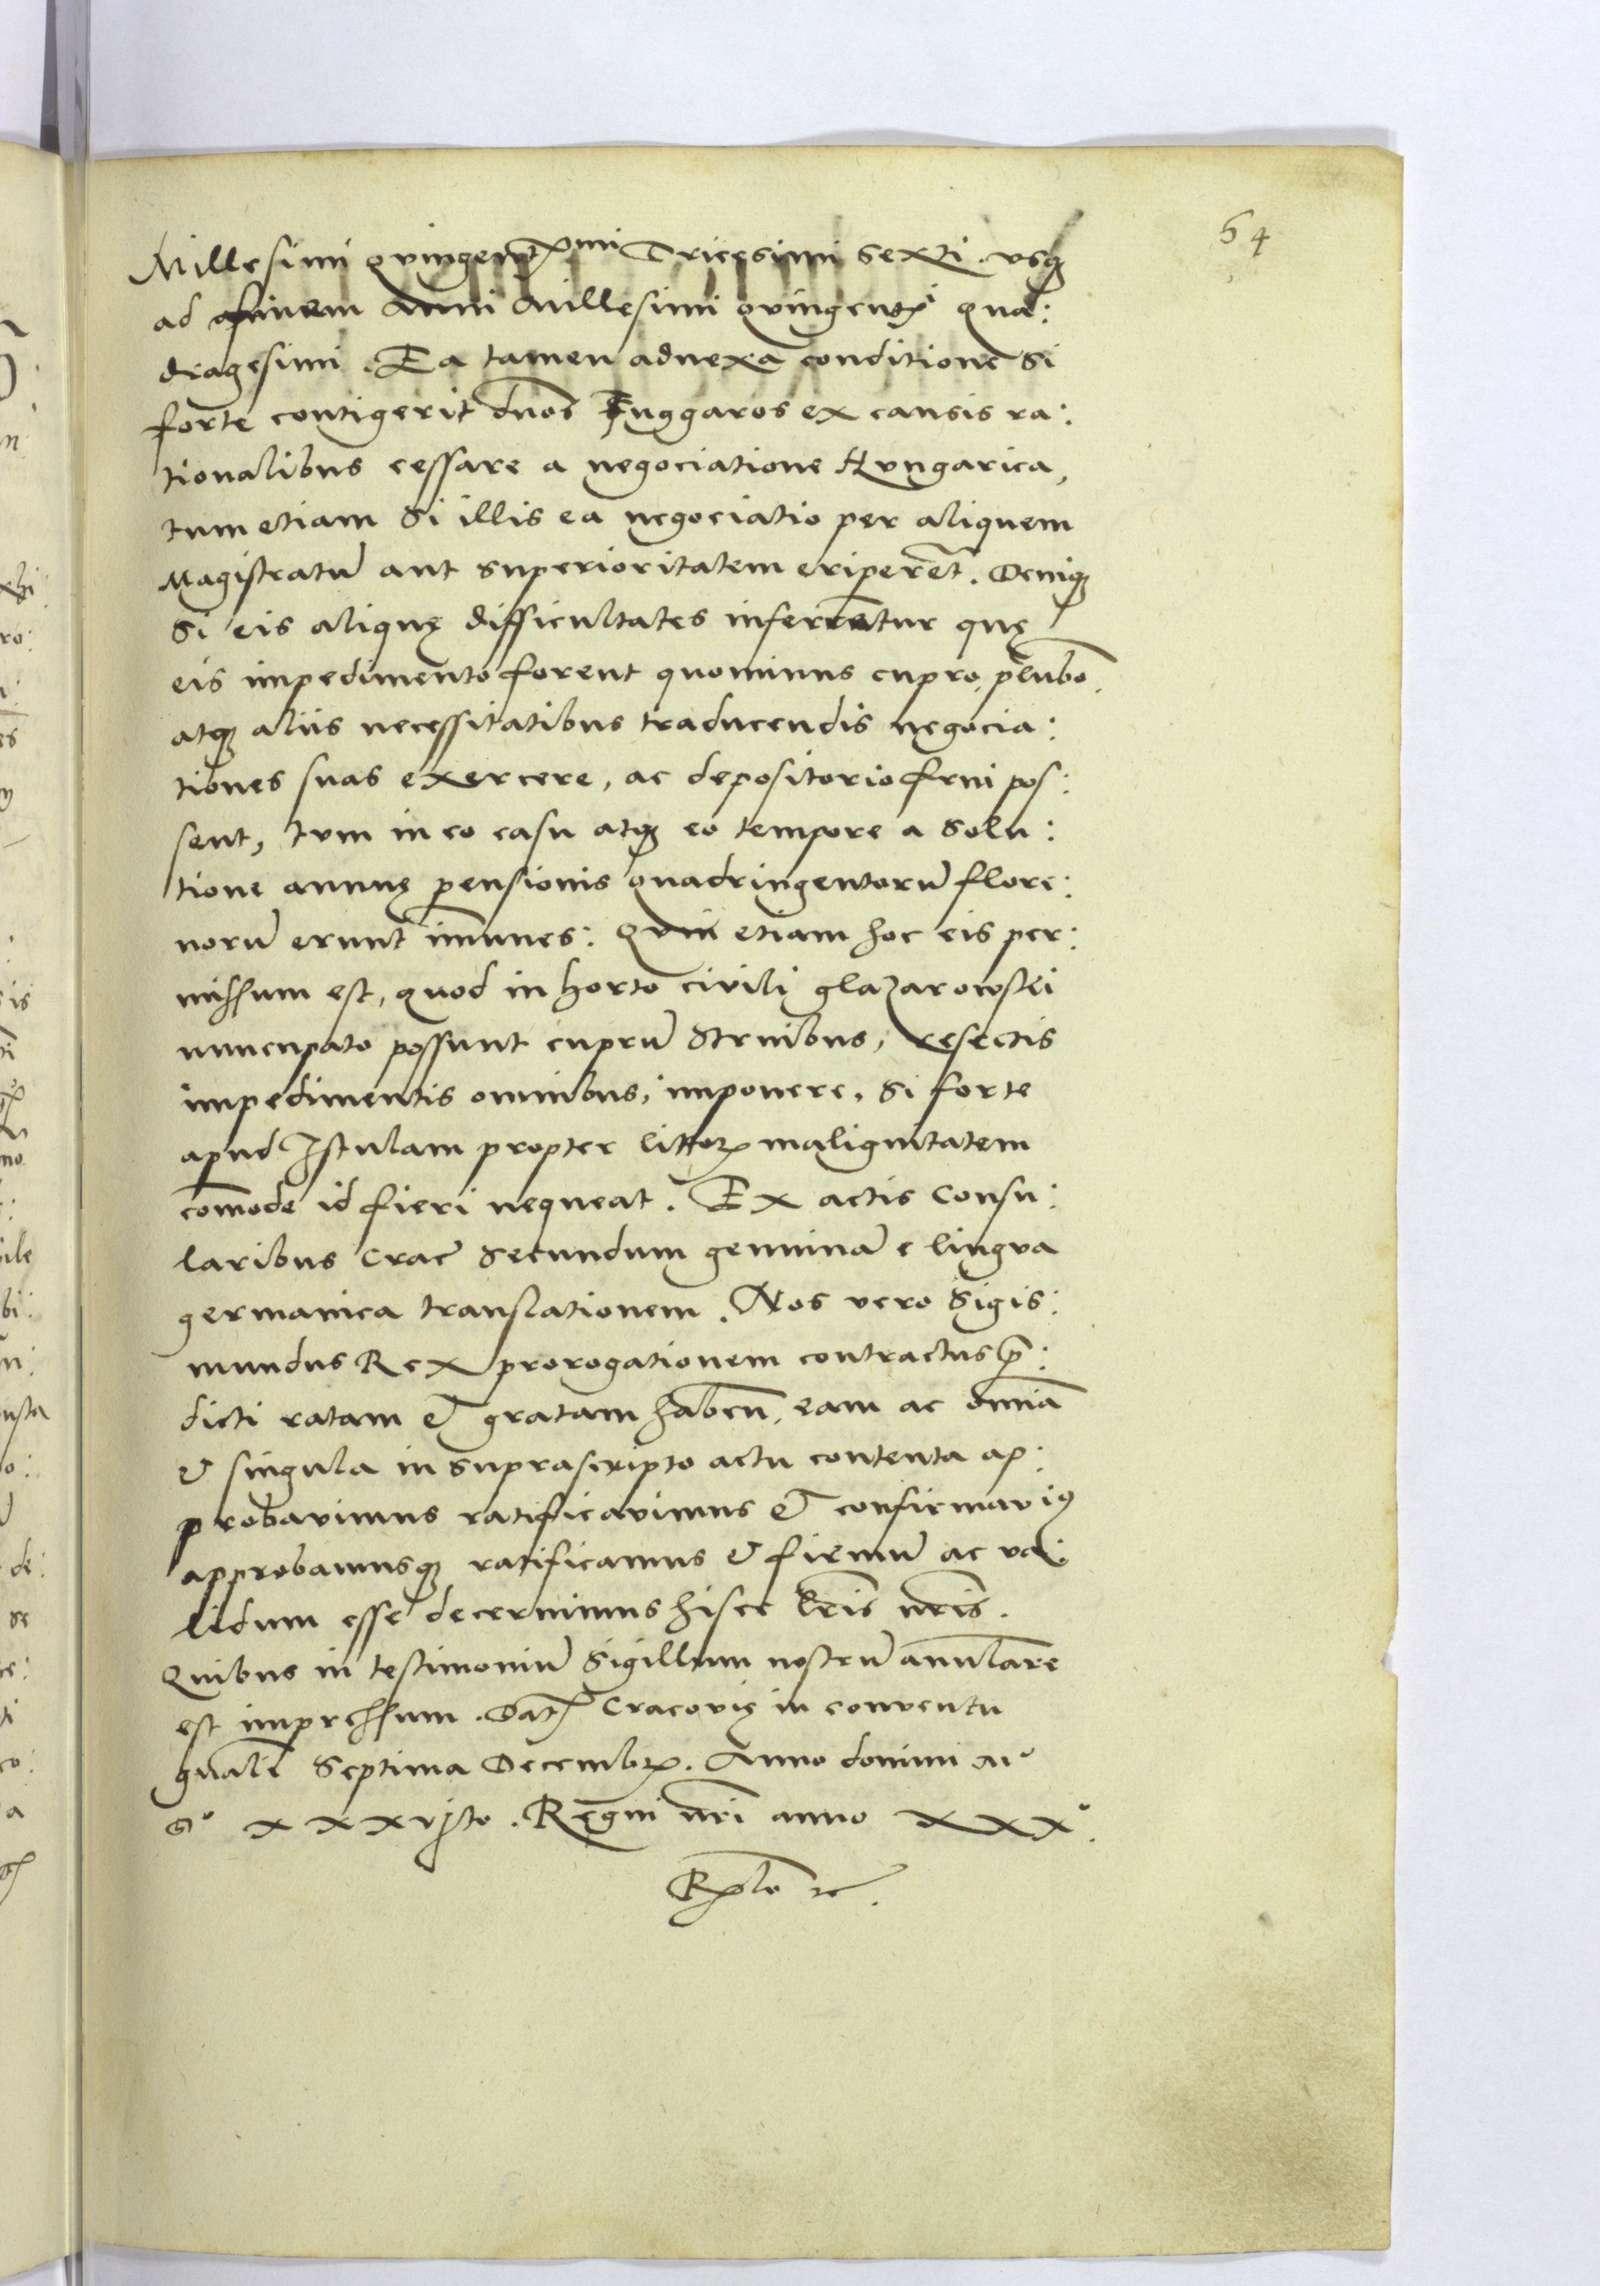 64
Millesimi quingentmi Tricesimi sexti. usq
ad finem Anni Millesimi quingenti qua:
dragesimi. Ea tamen adnexa conditione si
forte contigerit dnos Fuggaros ex causis ra:
tionalibus cessare a negociatione Hungarica,
tum etiam si illis ea negociatio per aliquem
Magistratu aut superioritatem eriperet. Deniq
si eis aliquę difficultates inferrentur quę
eis impedimento forent quominus cupro, plubo,
atq aliis necessitatibus traducendis negocia:
tiones suas exercere, ac depositorio frui pos:
sent, tum in eo casu atq eo tempore a solu:
tione annuę pensionis quadringentoru flore:
noru erunt imunes: Quin etiam hoc eis per:
missum est, quod in horto civili glazarowski
nuncupato possunt cupru struibus, resectis
impedimentis omnibus, imponere. Si forte
apud Istulam propter littor malignitatem
comode id fieri nequeat. Ex actis Consu:
laribus Crac secundum genuina e lingua
germanica translationem. Nos vero Sigis:
mundus Rex prorogationem contractus p:
dicti ratam et gratam haben, eam ac omnia
et singula in suprascripto actu contenta ap:
probavimus ratificavimus et confirmavi9
approbamusq ratificamus et firmu ac va:
lidum esse decernimus hisce lris nris.
Quibus in testimoniu Sigillum nostru annulare
est impressum. Dat Cracovię in conventu
gnali Septima Decembr. Anno domini Mº
Dº xxxvjto. Regni nri anno xxxº.